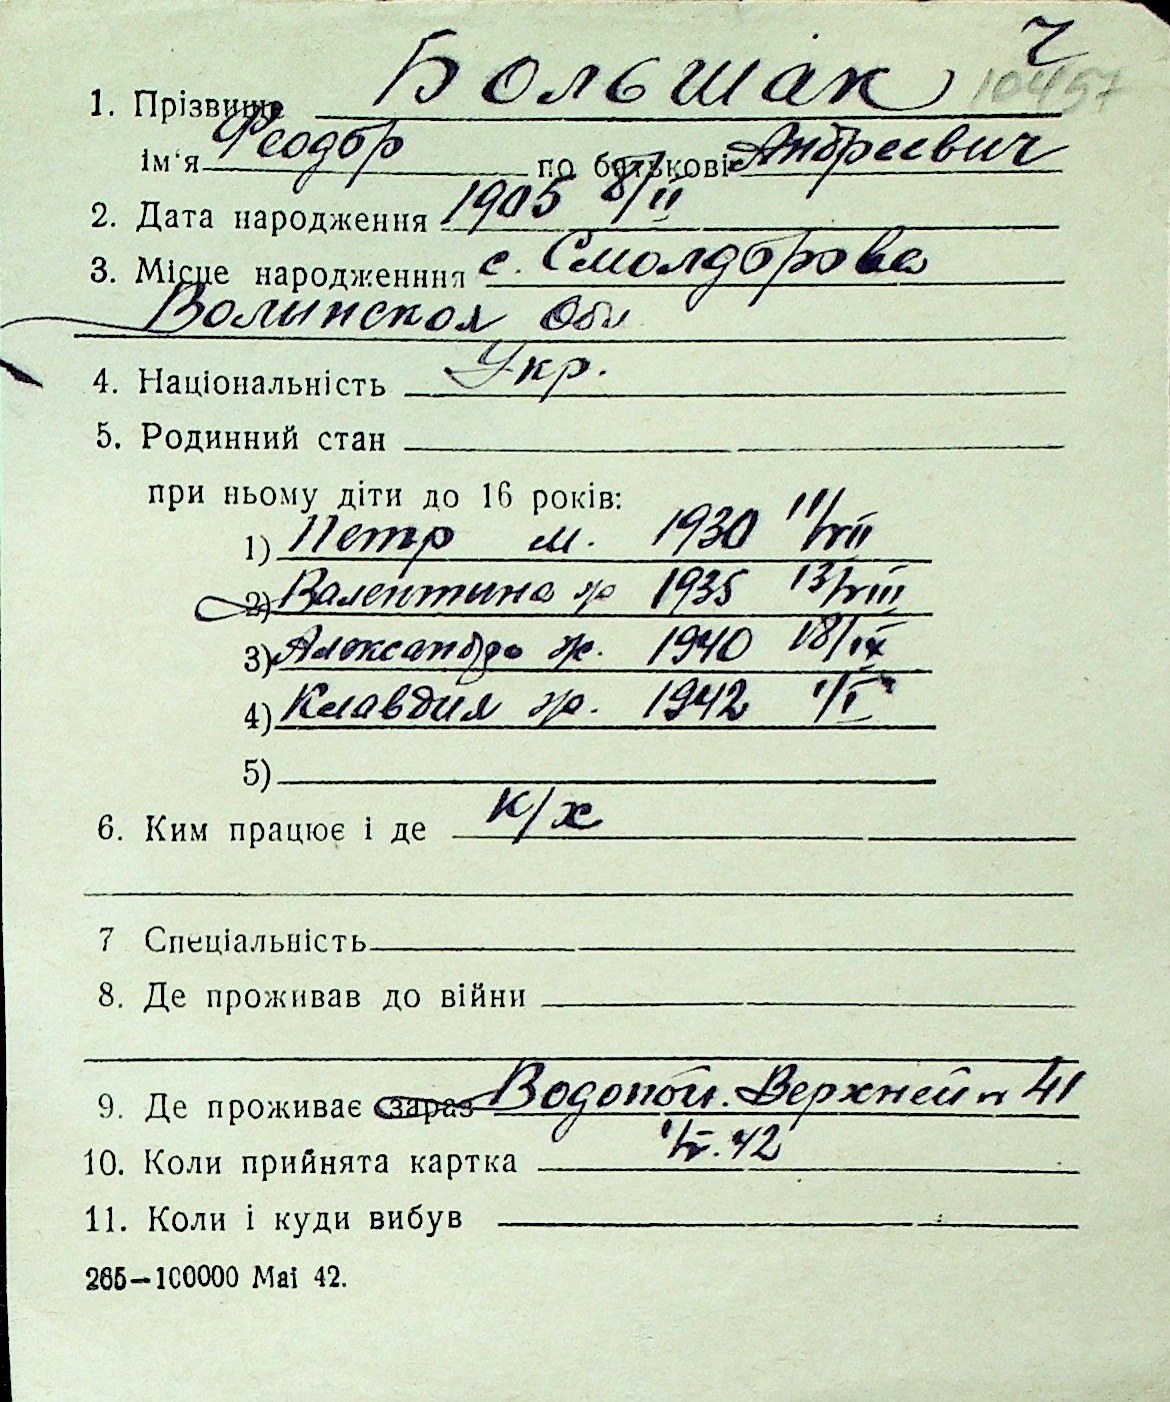 Ч
10457
1. Прізвище Большак
ім'я Феодор по батькові Андреевич
2. Дата народження 1905 8/II
3. Місце народженння с. Смолдорова
Волынская Обл
4. Національність Укр.
5. Родинний стан
при ньому діти до 16 років:
1) Петр м. 1930 11/VII
2) Валентина ж 1935 13/VIII
3) Александра ж. 1940 18/IX
4) Клавдия ж. 1942 1/I
5)
6. Ким працює і де к/х
7 Спеціальність
8. Де проживав до війни
9. Де проживає зараз Водопой. Верхней 41
10. Коли прийнята картка 42
11. Коли і куди вибув
265—100000 Mai 42.